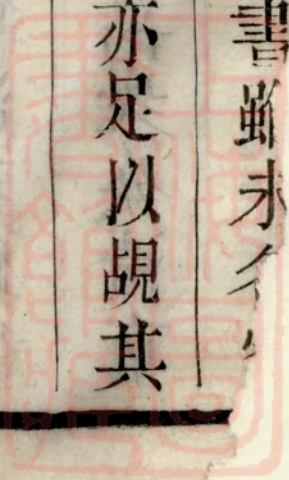 書雖未
亦足以覘其